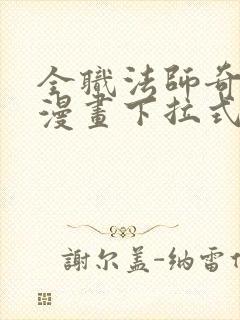 全職法師奇
漫畫下拉式
謝尔盖-纳雷